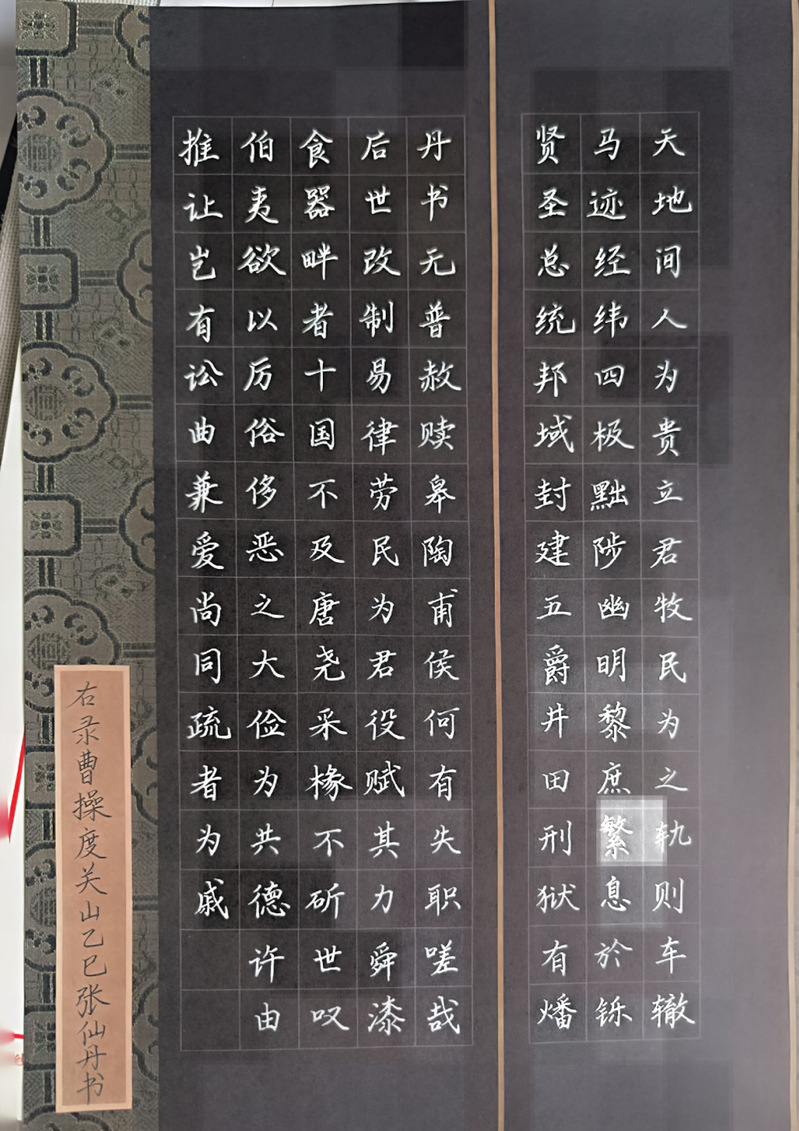 天地间人为贵立君牧民为之轨则车辙
马迹经纬四极黜陟幽明黎庶繁息於铄
贤圣总统邦域封建五爵井田刑狱有燔
丹书无普赦赎皋陶甫侯何有失职嗟哉
后世改制易律劳民为君役赋其力舜漆
食器畔者十国不及唐尧采椽不斫世叹
伯夷欲以厉俗侈恶之大俭为共德许由
推让岂有讼曲兼爱尚同疏者为戚
右录曹操度关山乙巳张仙丹书